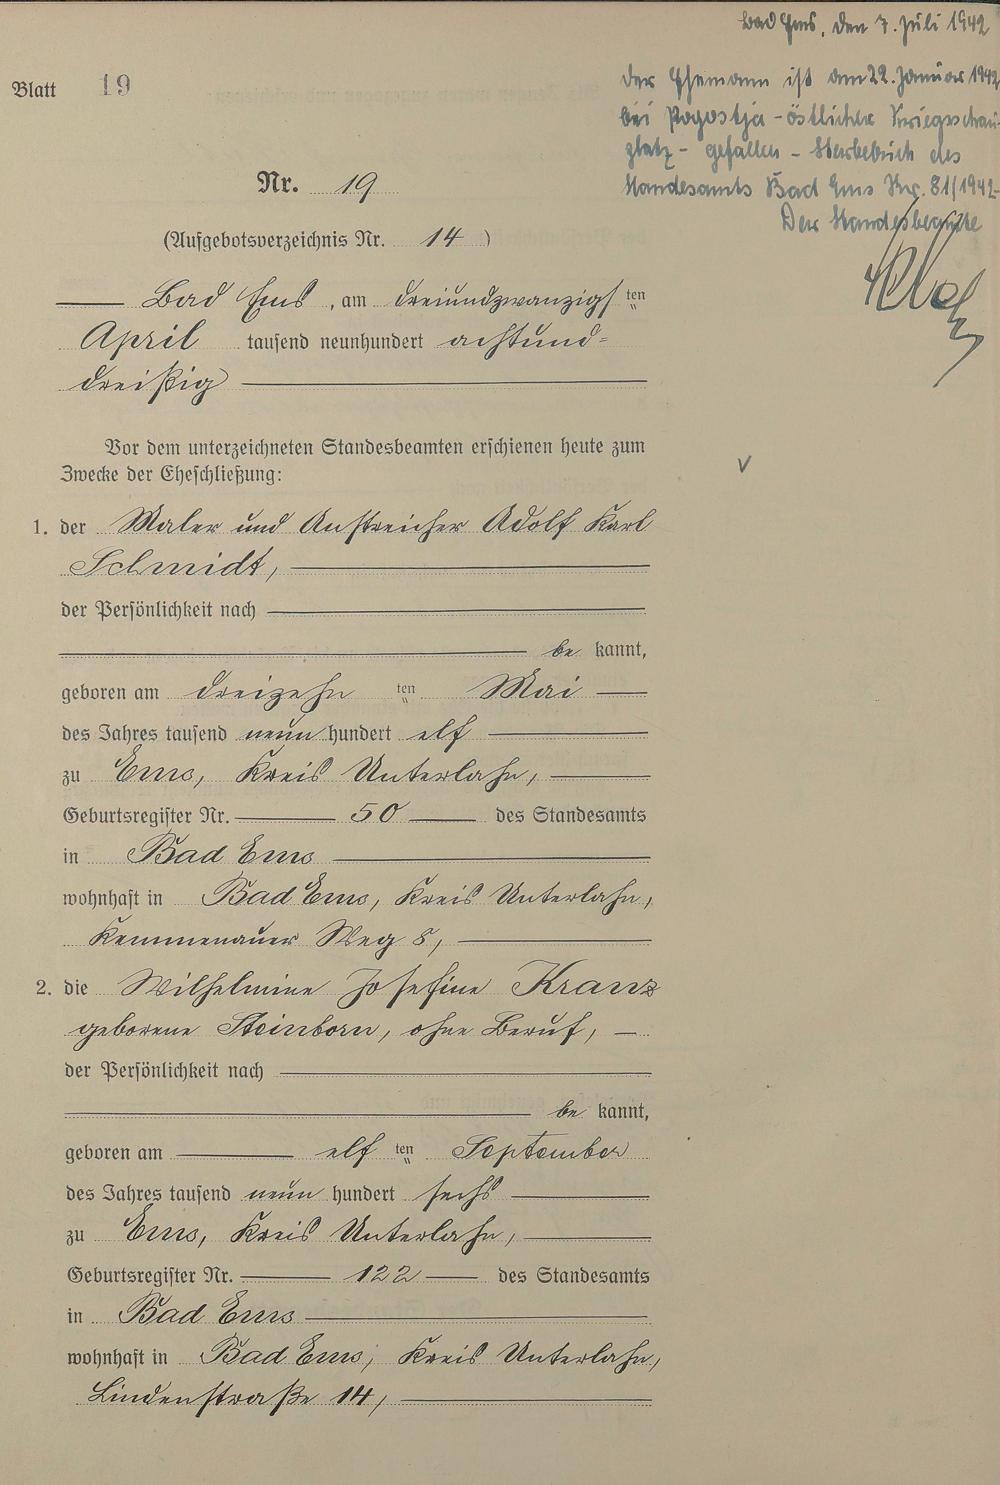 Bad Ems, den 7. Juli 1942
Der Ehemann ist am 22. Januar 1942
bei Pogostja - östlicher Kriegsschau-
platz - gefallen - Sterbebuch des
Standesamts Bad Ems Nr. 81/1942-
Der Standesbeamte
Blatt 19
Nr. 19
(Aufgebotsverzeichnis Nr. 14)
Bad Ems, am dreiundzwanzigsten
April tausend neunhundert achtund=
dreißig
Vor dem unterzeichneten Standesbeamten erschienen heute zum
Zwecke der Eheschließung:
1. der Maler und Anstreicher Adolf Karl
Schmidt,
der Persönlichkeit nach
be kannt,
geboren am dreizehn ten Mai
des Jahres tausend neun hundert elf
zu Ems, Kreis Unterlahn,
Geburtsregister Nr. 50 des Standesamts
in Bad Ems
wohnhaft in Bad Ems, Kreis Unterlahn,
Kemmenauer Weg 8,
2. die Wilhelmine Josefine Kranz
geborene Steinborn, ohne Beruf,
der Persönlichkeit nach
be kannt,
geboren am elf ten September
des Jahres tausend neun hundert sechs
zu Ems, Kreis Unterlahn,
Geburtsregister Nr. 122 des Standesamts
in Bad Ems
wohnhaft in Bad Ems, Kreis Unterlahn,
Lindenstraße 14,